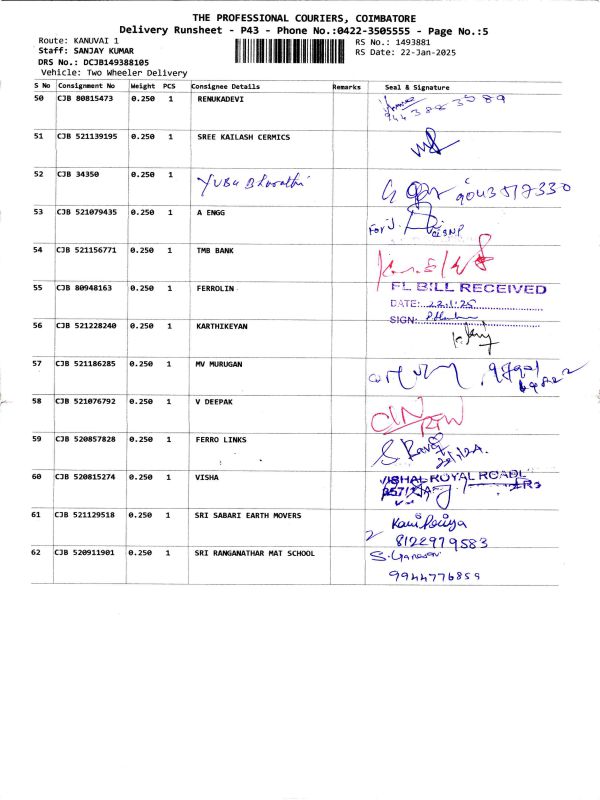 THE PROFESSIONAL COURIERS, COIMBATORE
Delivery Runsheet - P43 - Phone No.:0422-3505555 - Page No.:5
Route: KANUVAI 1
RS No.: 1493881
Staff: SANJAY KUMAR
RS Date: 22-Jan-2025
DRS No.: DCJB149388105
Vehicle: Two Wheeler Delivery
S No Consignment No Weight PCS Consignee Details Remarks Seal & Signature
50 CJB 80815473 0.250 1 RENUKADEVI
51 CJB 521139195 0.250 1 SREE KAILASH CERMICS
52 CJB 34350 0.250 1 Yuba Bharathi 9043517330
53 CJB 521079435 0.250 1 A ENGG For J.
54 CJB 521156771 0.250 1 TMB BANK
55 CJB 80948163 0.250 1 FERROLIN FL BILL RECEIVED
DATE: 22.1.25
SIGN:
56 CJB 521228240 0.250 1 KARTHIKEYAN
57 CJB 521186285 0.250 1 MV MURUGAN
58 CJB 521076792 0.250 1 V DEEPAK
59 CJB 520857828 0.250 1 FERRO LINKS
60 CJB 520815274 0.250 1 VISHA VISHAL ROYAL ROADL
61 CJB 521129518 0.250 1 SRI SABARI EARTH MOVERS
8122979583
62 CJB 520911901 0.250 1 SRI RANGANATHAR MAT SCHOOL S. Ganesan
9944776859